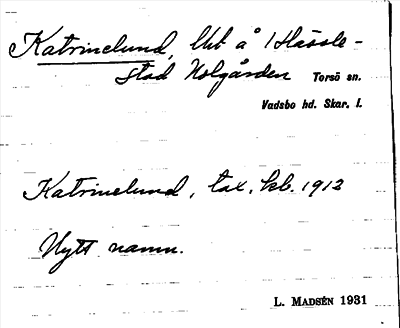 Katrinelund, Utt å 1 Hassle-
stad Nolgården Torsö sn.
Vadsbo hd. Skar. l.
Katrinelund, tax. kb. 1912
Nytt namn.
L. MADSÉN 1931